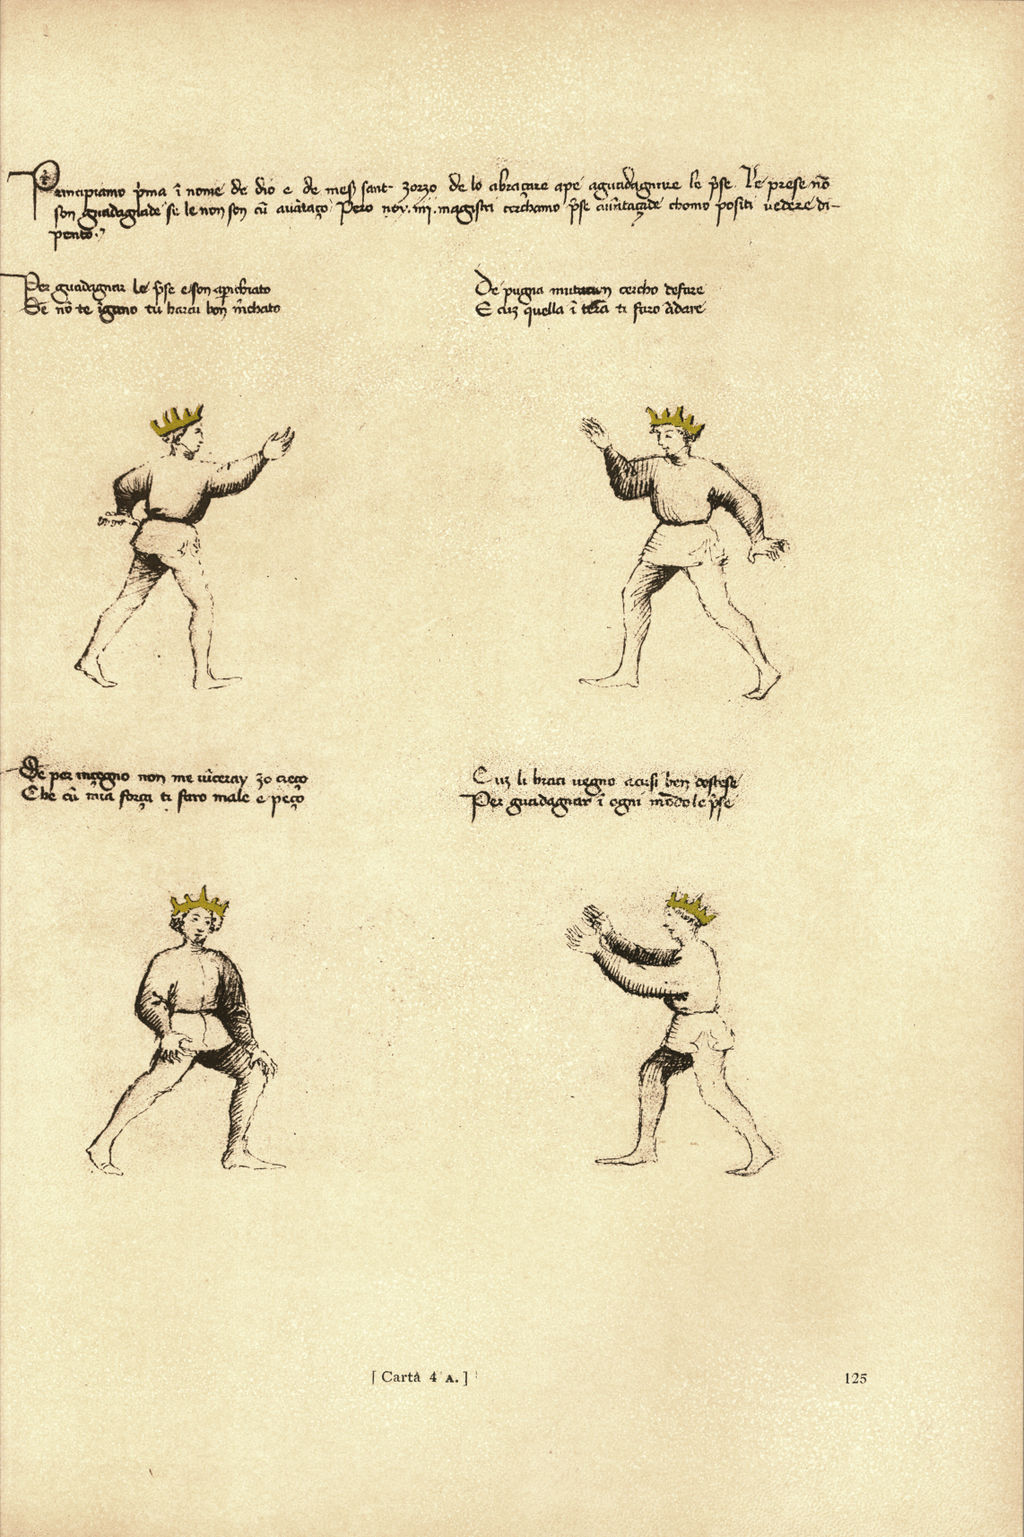 Principiamo p̄ma ī nome de dio e de mes̄ sant zorzo de lo abraçare a pe a guadagnare le p̄se. Le prese nō
son guadagnade se le non son cū auātaço Pero noy .iiii. magistri cerchamo p̄se auātaçade chomo positi vedere di-
pento.
Per guadagnar le p̄se e son aparichiato
Se nō te īgano tu harai bon m̄chato
De pugna mutacion cercho de fare
E cuz quella ī terra ti faro ādare
Se per incegno non me vīceray zo creço
Che cū mia força ti faro male e peço
Cuz li braci vegno acusi ben destese
Per guadagnar ī ogni modo le p̄se
[ Carta 4 A. ]
125